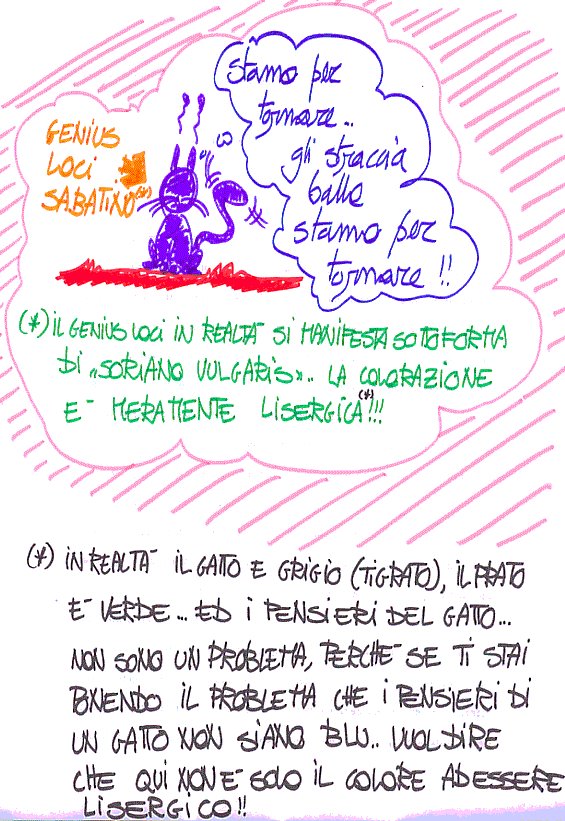 GENIUS
LOCI
SABATINO(*)
stamo per
tornare..
gli straccia
balle
stamo per
tornare!!
(*) IL GENIUS LOCI IN REALTA' SI MANIFESTA SOTTOFORMA
DI «SORIANO VULGARIS».. LA COLORAZIONE
E' MERAMENTE LISERGICA(*)!!!
(*) IN REALTA' IL GATTO E GRIGIO (TIGRATO), IL PRATO
E' VERDE... ED I PENSIERI DEL GATTO...
NON SONO UN PROBLEMA, PERCHE' SE TI STAI
PONENDO IL PROBLEMA CHE I PENSIERI DI
UN GATTO NON SIANO BLU.. VUOLDIRE
CHE QUI NON E' SOLO IL COLORE AD ESSERE
LISERGICO!!